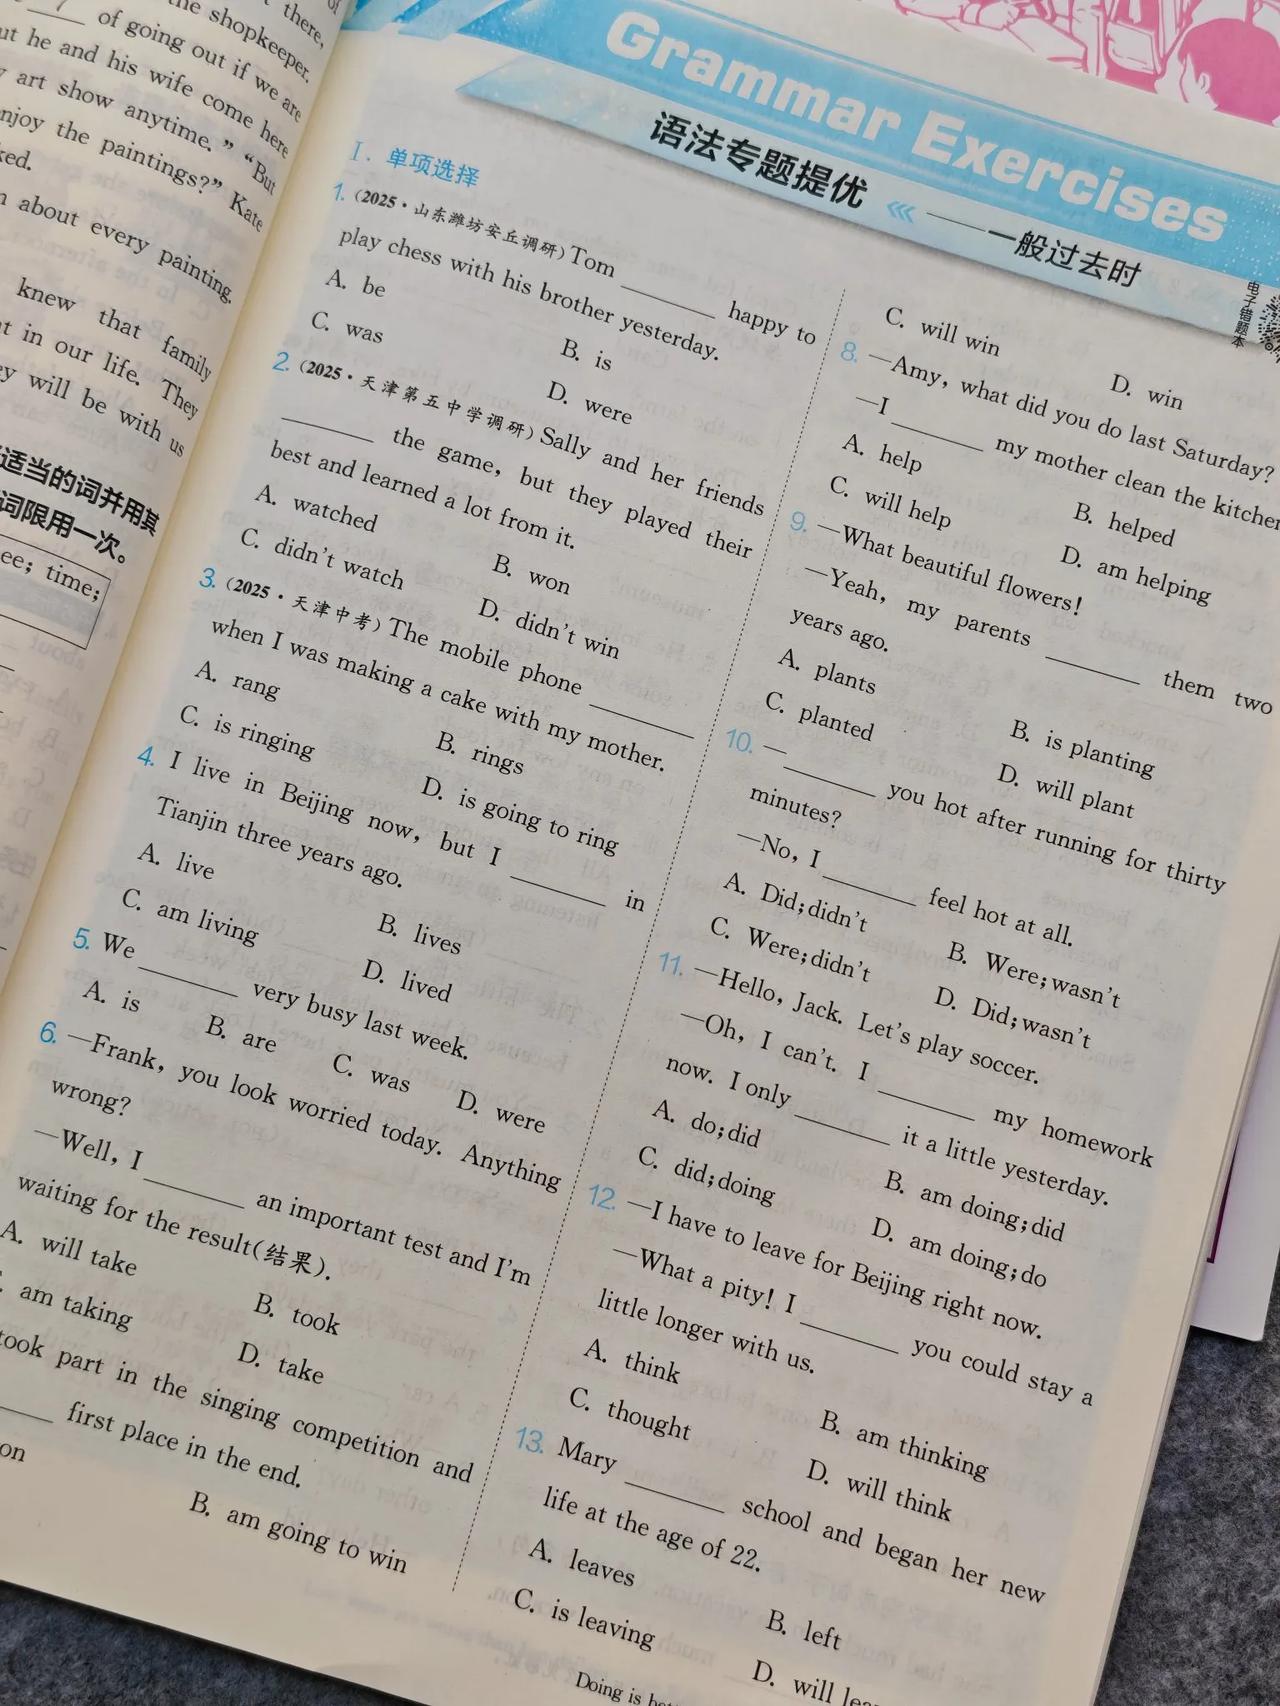 there,
the shopkeeper.
of going out if we are
but he and his wife come here
art show anytime." "But
enjoy the paintings?" Kate
about every painting.
knew that family
in our life. They
will be with us
适当的词并用其
词限用一次。
time;
Grammar Exercises
语法专题提优
——一般过去时
电子错题本
I. 单项选择
1. (2025·山东潍坊安丘调研) Tom ______ happy to
play chess with his brother yesterday.
A. be
B. is
C. was
D. were
2. (2025·天津第五中学调研) Sally and her friends
______ the game, but they played their
best and learned a lot from it.
A. watched
B. won
C. didn't watch
D. didn't win
3. (2025·天津中考) The mobile phone ______
when I was making a cake with my mother.
A. rang
B. rings
C. is ringing
D. is going to ring
4. I live in Beijing now, but I ______ in
Tianjin three years ago.
A. live
B. lives
C. am living
D. lived
5. We ______ very busy last week.
A. is B. are C. was D. were
6. —Frank, you look worried today. Anything
wrong?
—Well, I ______ an important test and I'm
waiting for the result(结果).
A. will take
B. took
C. am taking
D. take
took part in the singing competition and
______ first place in the end.
B. am going to win
C. will win
D. win
8. —Amy, what did you do last Saturday?
—I ______ my mother clean the kitchen
A. help
B. helped
C. will help
D. am helping
9. —What beautiful flowers!
—Yeah, my parents ______ them two
years ago.
A. plants
B. is planting
C. planted
D. will plant
10. —______ you hot after running for thirty
minutes?
—No, I ______ feel hot at all.
A. Did;didn't
B. Were;wasn't
C. Were;didn't
D. Did;wasn't
11. —Hello, Jack. Let's play soccer.
—Oh, I can't. I ______ my homework
now. I only ______ it a little yesterday.
A. do;did
B. am doing;did
C. did;doing
D. am doing;do
12. —I have to leave for Beijing right now.
—What a pity! I ______ you could stay a
little longer with us.
A. think
B. am thinking
C. thought
D. will think
13. Mary ______ school and began her new
life at the age of 22.
A. leaves
B. left
C. is leaving
D. will
Doing is